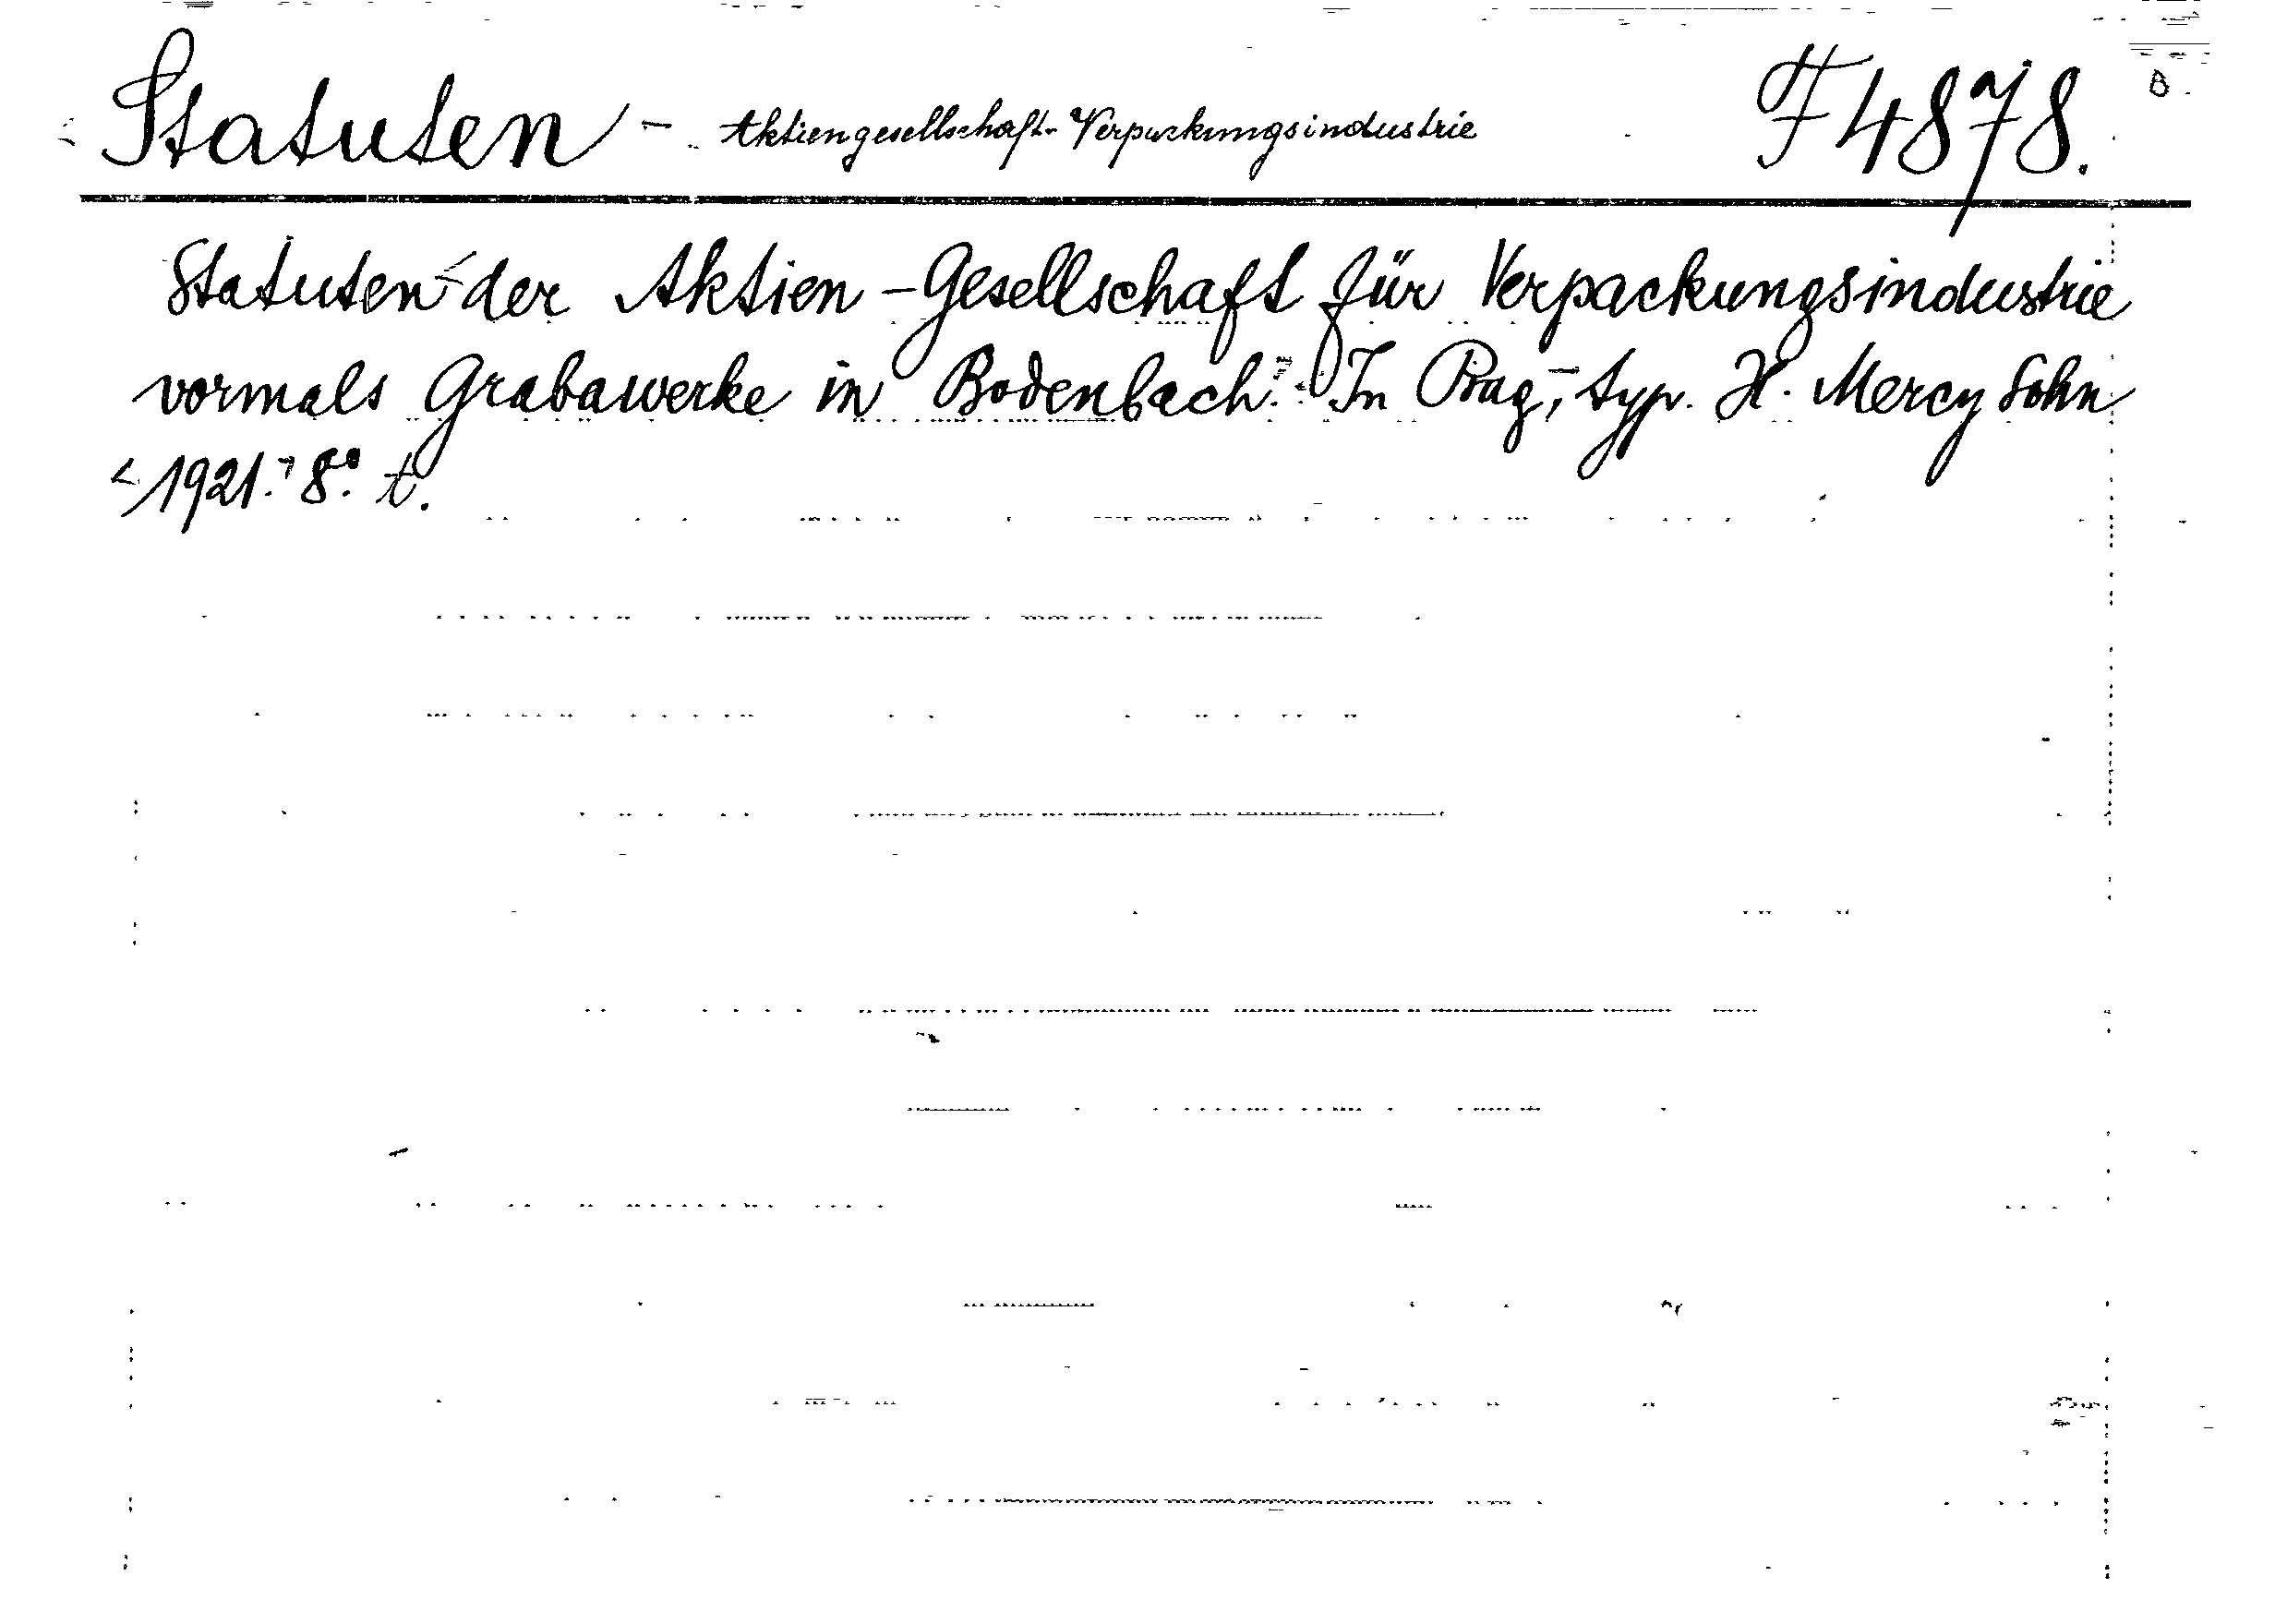 Statuten - Aktiengesellschaft-Verpackungsindustrie F 4878.
Statuten der Aktien-Gesellschaft für Verpackungsindustrie
vormals Grabawerke in Bodenbach. - In Prag, - typ. H. Mercy Sohn
1921. - 8°. t.